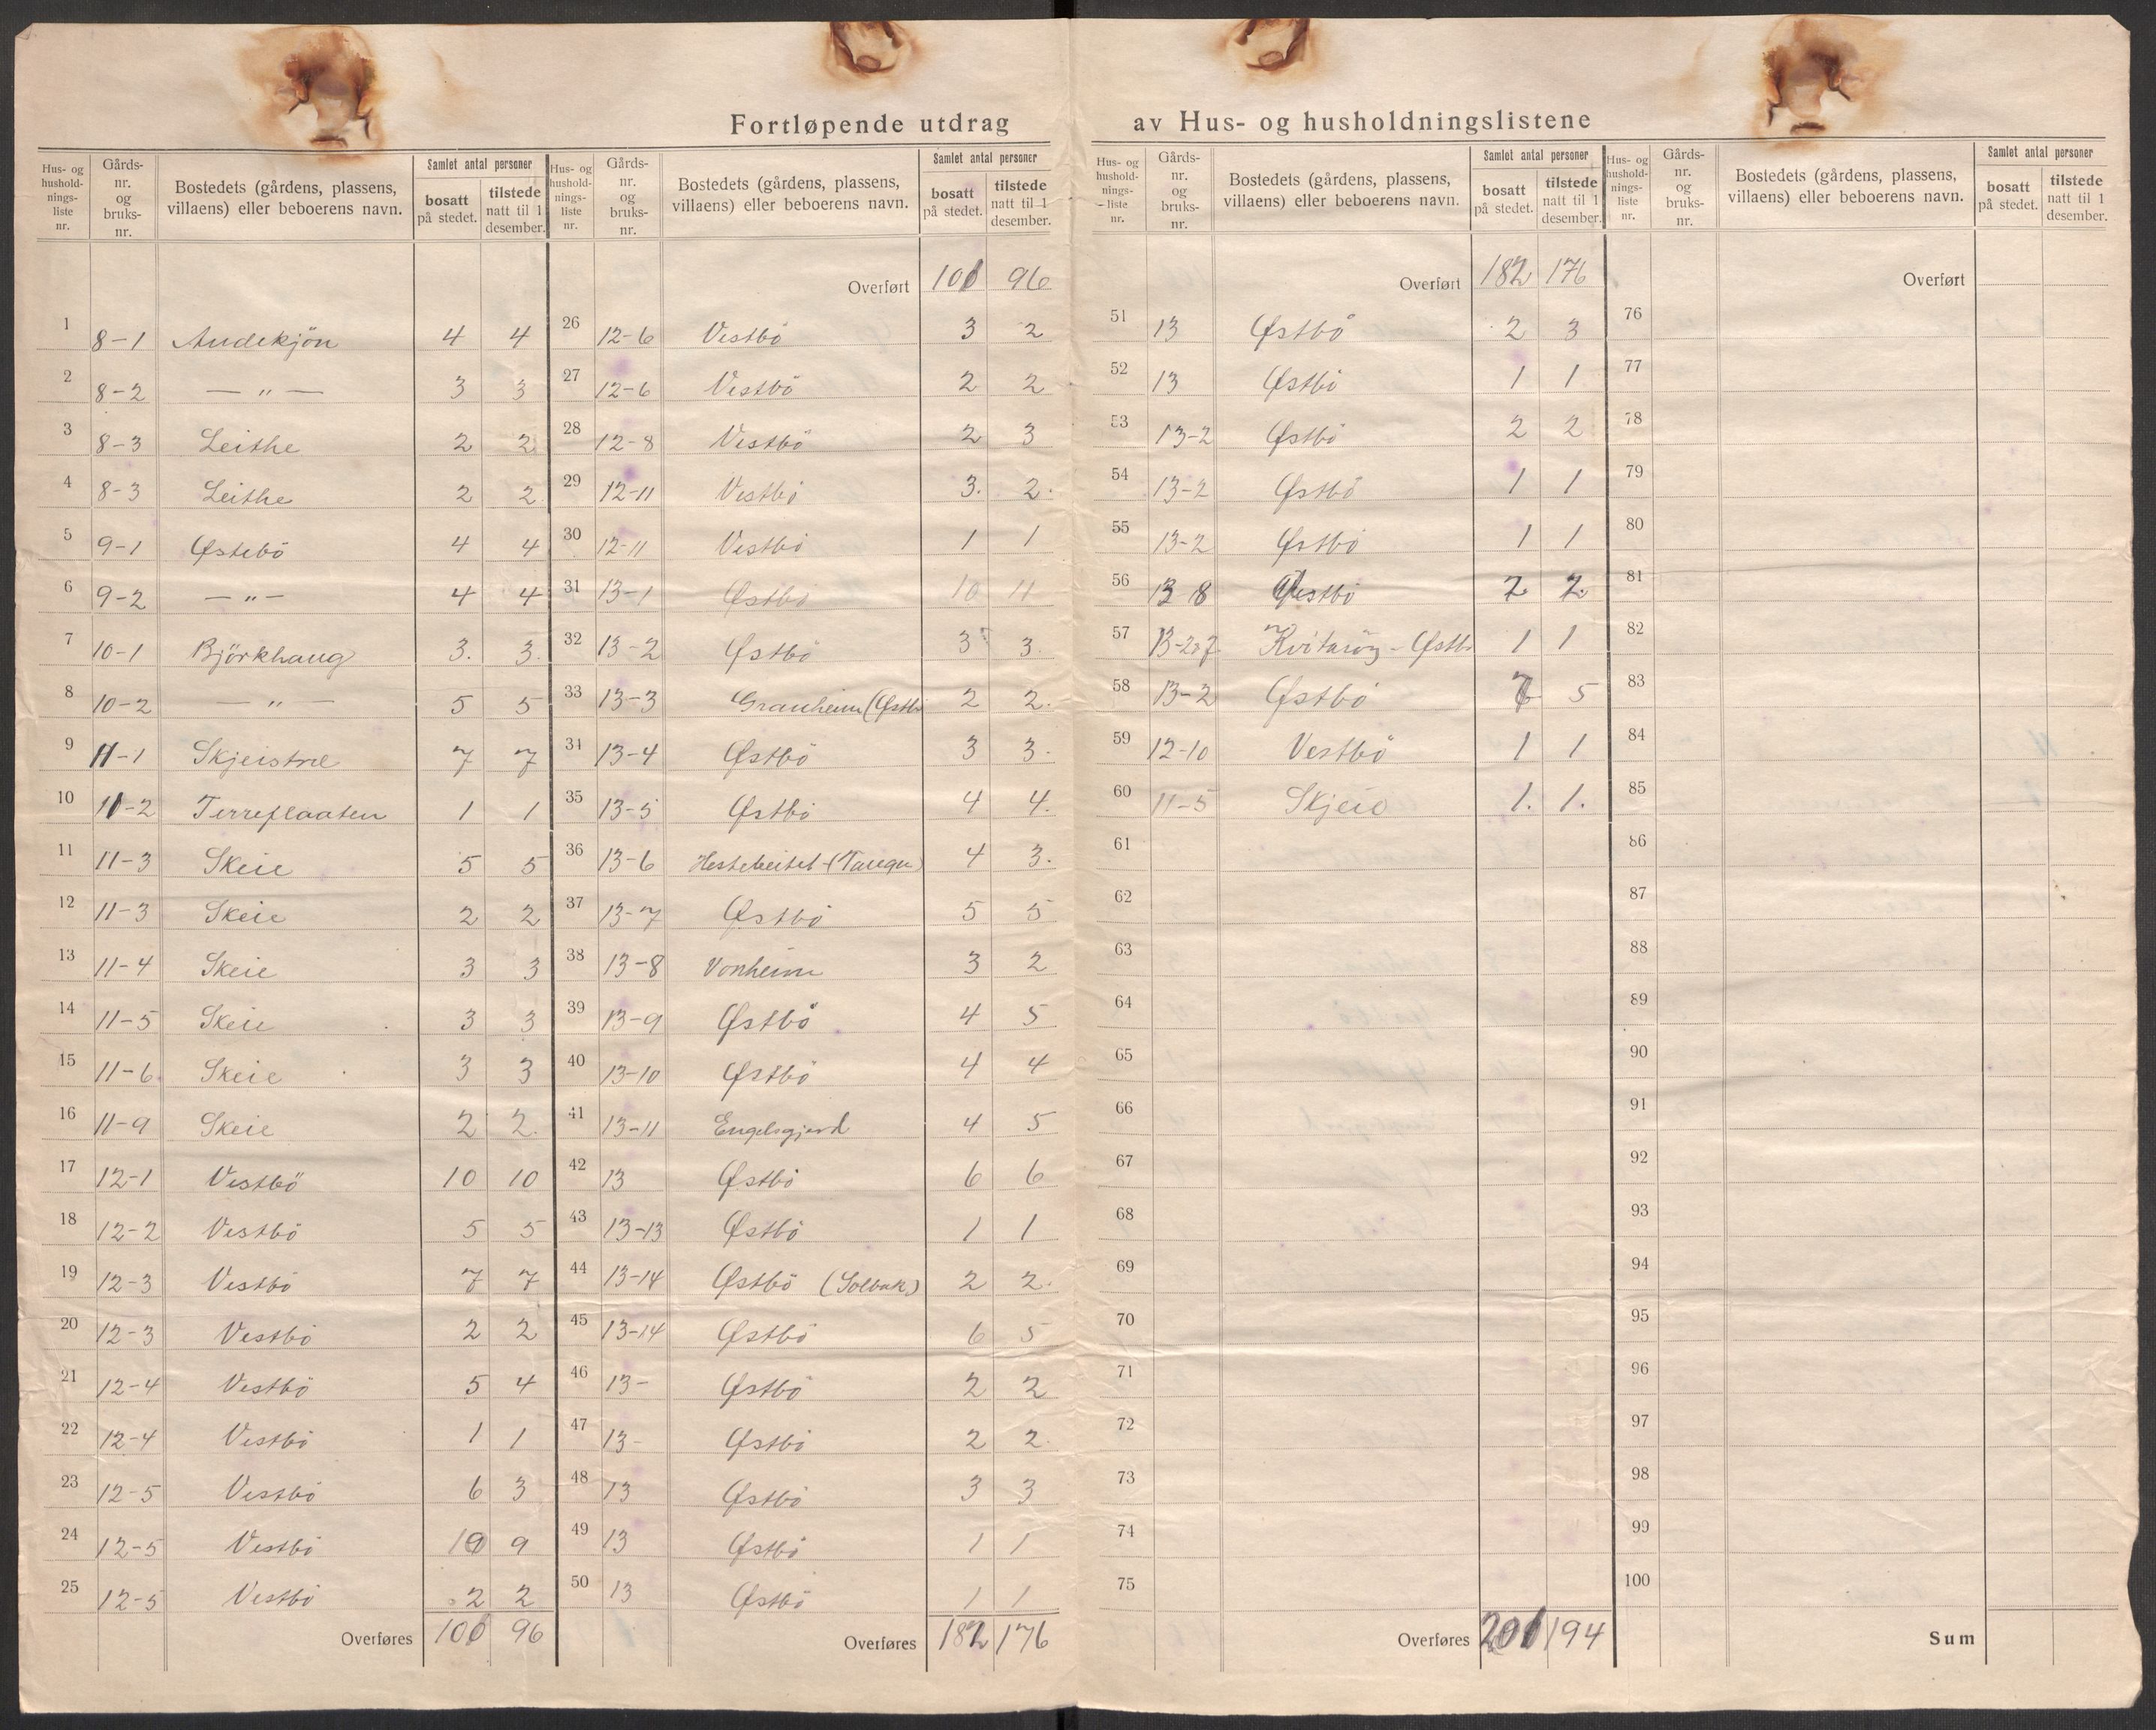 Fortløpende utdrag av Hus- og husholdningslistene
Hus- og husholdnings-liste nr. Gårds-nr. og bruks-nr. Bostedets (gårdens, plassens, villaens) eller beboerens navn. Samlet antal personer bosatt på stedet. tilstede natt til 1 desember.
1 8-1 Andekjön 4 4
2 8-2 — " — 3 3
3 8-3 Leithe 2 2
4 8-3 Leithe 2 2
5 9-1 Østebö 4 4
6 9-2 — " — 4 4
7 10-1 Björkhaug 3. 3.
8 10-2 — " — 5 5
9 11-1 Skjeistrae 7 7
10 11-2 Terreflaaten 1 1
11 11-3 Skeie 5 5
12 11-3 Skeie 2 2
13 11-4 Skeie 3 3
14 11-5 Skeie 3 3
15 11-6 Skeie 3 3
16 11-9 Skeie 2 2.
17 12-1 Vestbö 10 10
18 12-2 Vestbö 5 5
19 12-3 Vestbö 7 7
20 12-3 Vestbö 2 2
21 12-4 Vestbö 5 4
22 12-4 Vestbö 1 1
23 12-5 Vestbö 6 3
24 12-5 Vestbö 10 9
25 12-5 Vestbö 2 2
Overføres 101 96
Hus- og husholdnings-liste nr. Gårds-nr. og bruks-nr. Bostedets (gårdens, plassens, villaens) eller beboerens navn. Samlet antal personer bosatt på stedet. tilstede natt til 1 desember.
Overført 101 96
26 12-6 Vestbö 3 2
27 12-6 Vestbö 2 2
28 12-8 Vestbö 2 3
29 12-11 Vestbö 3. 2.
30 12-11 Vestbö 1 1
31 13-1 Østbö 10 11
32 13-2 Østbö 3 3.
33 13-3 Granheim (Østbö 2 2.
34 13-4 Østbö 3 3.
35 13-5 Østbö 4 4.
36 13-6 Hestebeitet 4 3.
37 13-7 Østbö 5 5
38 13-8 Vonheim 3 2
39 13-9 Østbö 4 5
40 13-10 Østbö 4 4
41 13-11 Engelsgjerd 4 5
42 13 Østbö 6 6
43 13-13 Østbö 1 1
44 13-14 Østbö (Solbak) 2 2.
45 13-14 Østbö 6 5
46 13- Østbö 2 2
47 13- Østbö 2 2
48 13 Østbö 3 3
49 13 Østbö 1 1
50 13 Østbö 1 1
Overføres 182 176
Hus- og husholdnings-liste nr. Gårds-nr. og bruks-nr. Bostedets (gårdens, plassens, villaens) eller beboerens navn. Samlet antal personer bosatt på stedet. tilstede natt til 1 desember.
Overført 182 176
51 13 Østbö 2 3
52 13 Østbö 1 1
53 13-2 Østbö 2 2
54 13-2 Østbö 1 1
55 13-2 Østbö 1 1
56 13 8 2 2.
57 Østb 1 1
58 13-2 Østbö 5
59 12-10 Vestbö 1 1
60 11-5 Skjeie 1. 1.
61
62
63
64
65
66
67
68
69
70
71
72
73
74
75
Overføres 201 194
Hus- og husholdnings-liste nr. Gårds-nr. og bruks-nr. Bostedets (gårdens, plassens, villaens) eller beboerens navn. Samlet antal personer bosatt på stedet. tilstede natt til 1 desember.
Overført
76
77
78
79
80
81
82
83
84
85
86
87
88
89
90
91
92
93
94
95
96
97
98
99
100
Sum